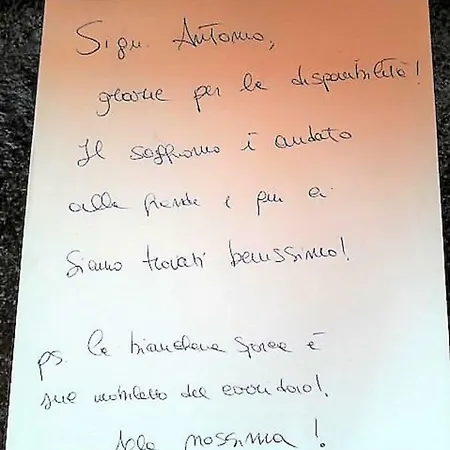 Sign. Antonio,
grazie per la disponibilità!
Il soggiorno è andato
alla grande e poi ci
siamo trovati benissimo!
ps. la biancheria sporca è
sul mobiletto del corridoio!
Alla prossima!